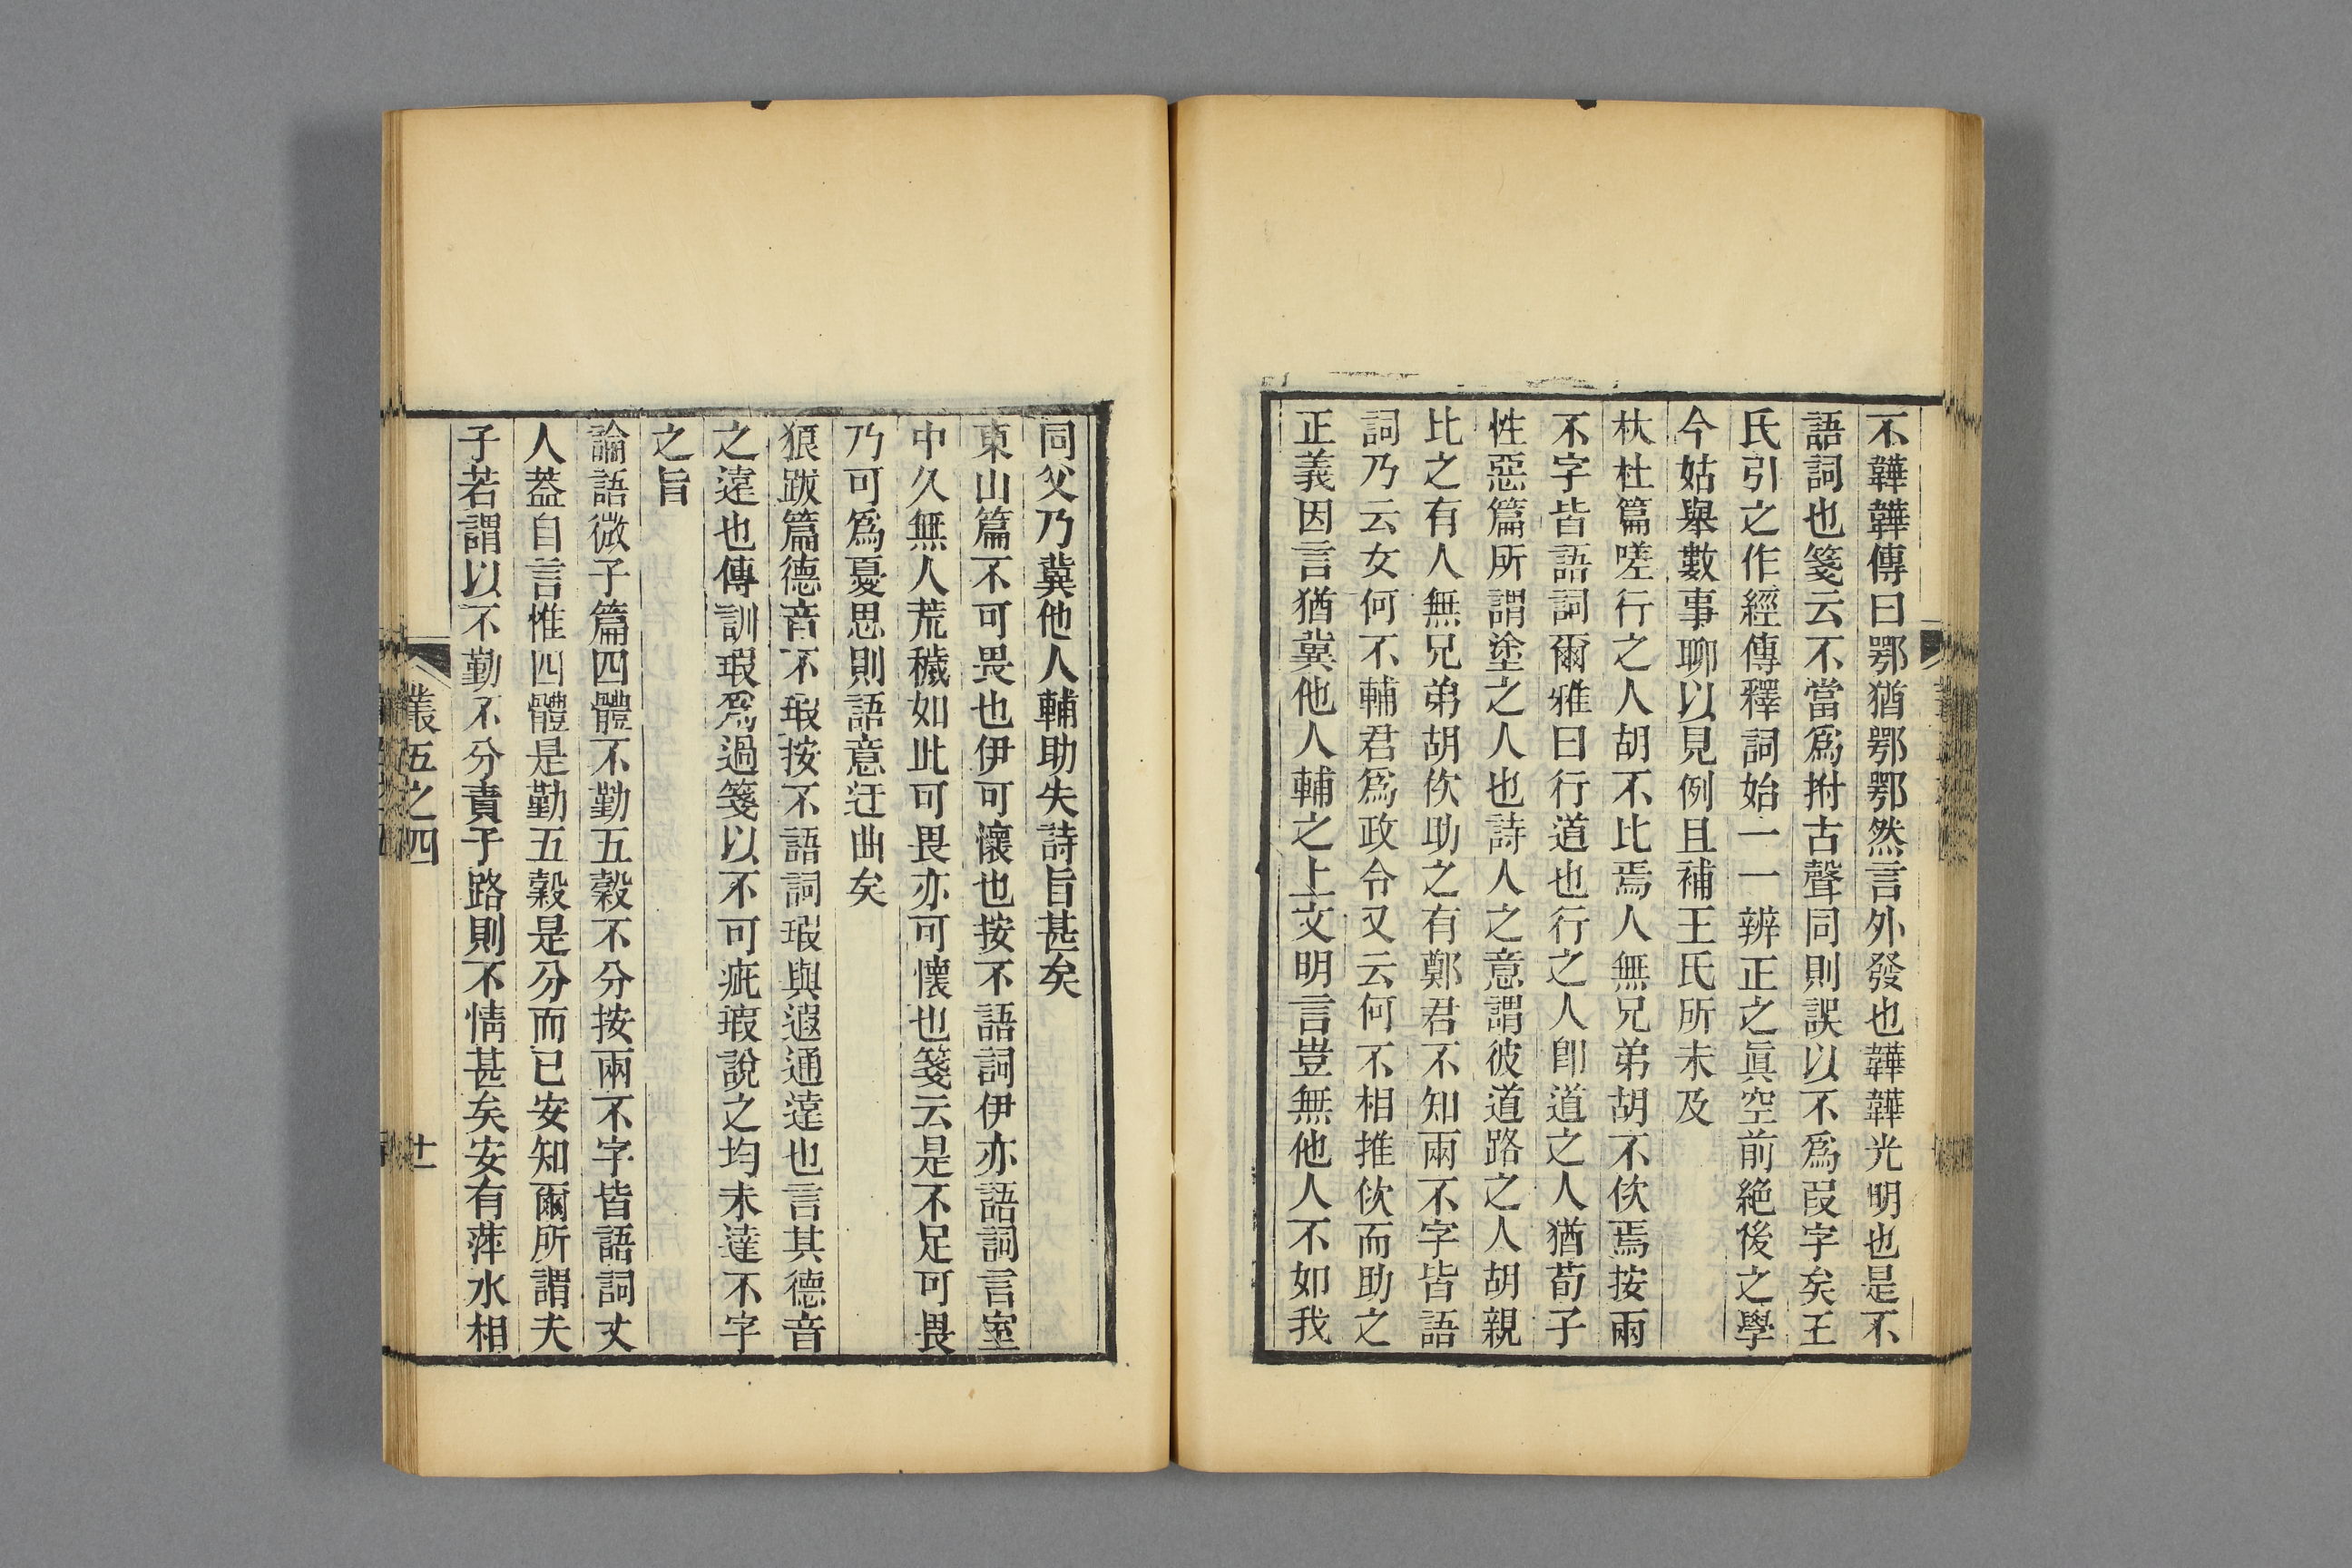 不韡韡傳曰鄂猶鄂鄂然言外發也韡韡光明也是不
語詞也箋云不當爲拊古聲同則誤以不爲叚字矣王
氏引之作經傳釋詞始一一辨正之眞空前絶後之學
今姑舉數事聊以見例且補王氏所未及
杕杜篇嗟行之人胡不比焉人無兄弟胡不佽焉按兩
不字皆語詞爾雅曰行道也行之人卽道之人猶荀子
性惡篇所謂塗之人也詩人之意謂彼道路之人胡親
比之有人無兄弟胡佽助之有鄭君不知兩不字皆語
詞乃云女何不輔君爲政令又云何不相推佽而助之
正義因言猶冀他人輔之上文明言豈無他人不如我
同父乃冀他人輔助失詩旨甚矣
東山篇不可畏也伊可懷也按不語詞伊亦語詞言室
中久無人荒穢如此可畏亦可懷也箋云是不足可畏
乃可爲憂思則語意迂曲矣
狼跋篇德音不瑕按不語詞瑕與遐通遠也言其德音
之遠也傳訓瑕爲過箋以不可疵瑕說之均未達不字
之旨
論語微子篇四體不勤五穀不分按兩不字皆語詞丈
人葢自言惟四體是勤五穀是分而已安知爾所謂夫
子若謂以不勤不分責子路則不情甚矣安有萍水相
叢五之四
十一